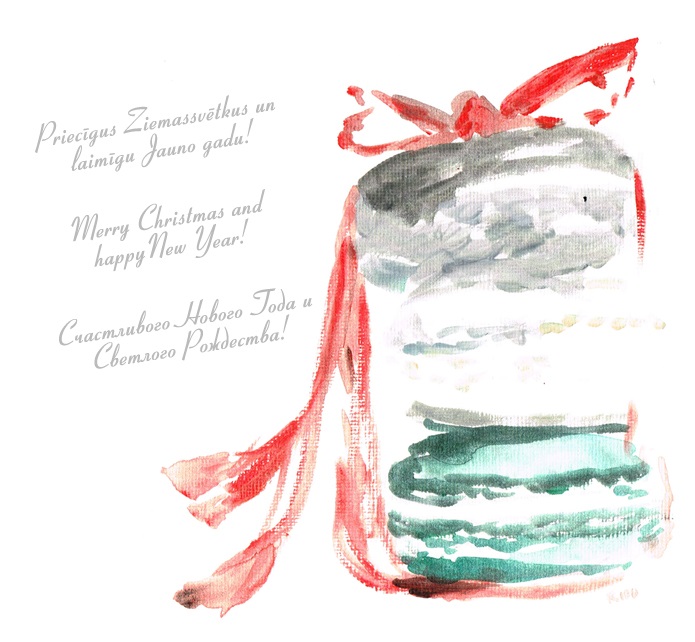 Priecīgus Ziemassvētkus un
laimīgu Jauno gadu!
Merry Christmas and
happy New Year!
Счастливого Нового Года и
Светлого Рождества!